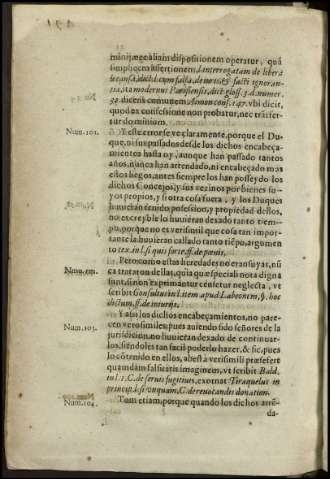 minij, æge aliam dispositionem operatur, quá
simplicem assertionem, l. interrogatam de libera
& causa, dict. l. cum falsa, de iuris & facti ignoran-
tia, ita modernus Parisiensis, dict. gloss. 3. d. numer.
39. dicens comunem Annon cons. 147. vbi dicit,
quod ex confessione non probatur, nec trãsfer-
tur dominium.
Num. 101.
Y este error se ve claramente, porque el Du-
que, ni sus passados desde los dichos encabeça-
mientos hasta oy, aunque han passado tantos
años, nunca han arrendado, ni encabeçado mas
ellos, antes siempre los han posseydo los
dichos Concejos, y sus vezinos por bienes su-
yos propios, y si otra cosa fuera, y los Duques
huuieran tenido possession, y propiedad dellos,
no es creyble lo huuieran dexado tanto tiem-
po, porque no es verisimil que cosa tan impor-
tante la huuieran callado tanto tiẽpo, argumen
to tex. in l. si quis forte, ff. de pœnis.
Pero como estas heredades no eran suyas, nũ
ca trataron dellas, quia quæ speciali nota digna
Num. 102.
sunt, si non exprimantur censetur neglecta, vt
scribit Consultus in l. item apud Labeonem, §. hoc
dictum, ff. de iniurijs.
Y assi los dichos encabeçamientos, no pare-
Num. 103.
cen verosimiles, pues auiendo sido señores de la
jurisdicion, no huuieran dexado de continuar-
los, siendoles tan facil poderlo hazer, & sic, pues
lo cõtenido en ellos, abest à verisimili præsefert
quandam falsitatis imaginem, vt scribit Bald.
in l. 1. C. de seruis fugitiuis, exornat Tiraquelus in
princip. l. si vnquam, C. de reuocandis donation.
Num. 104.
Tum etiam, porque quando los dichos arrẽ-
da-